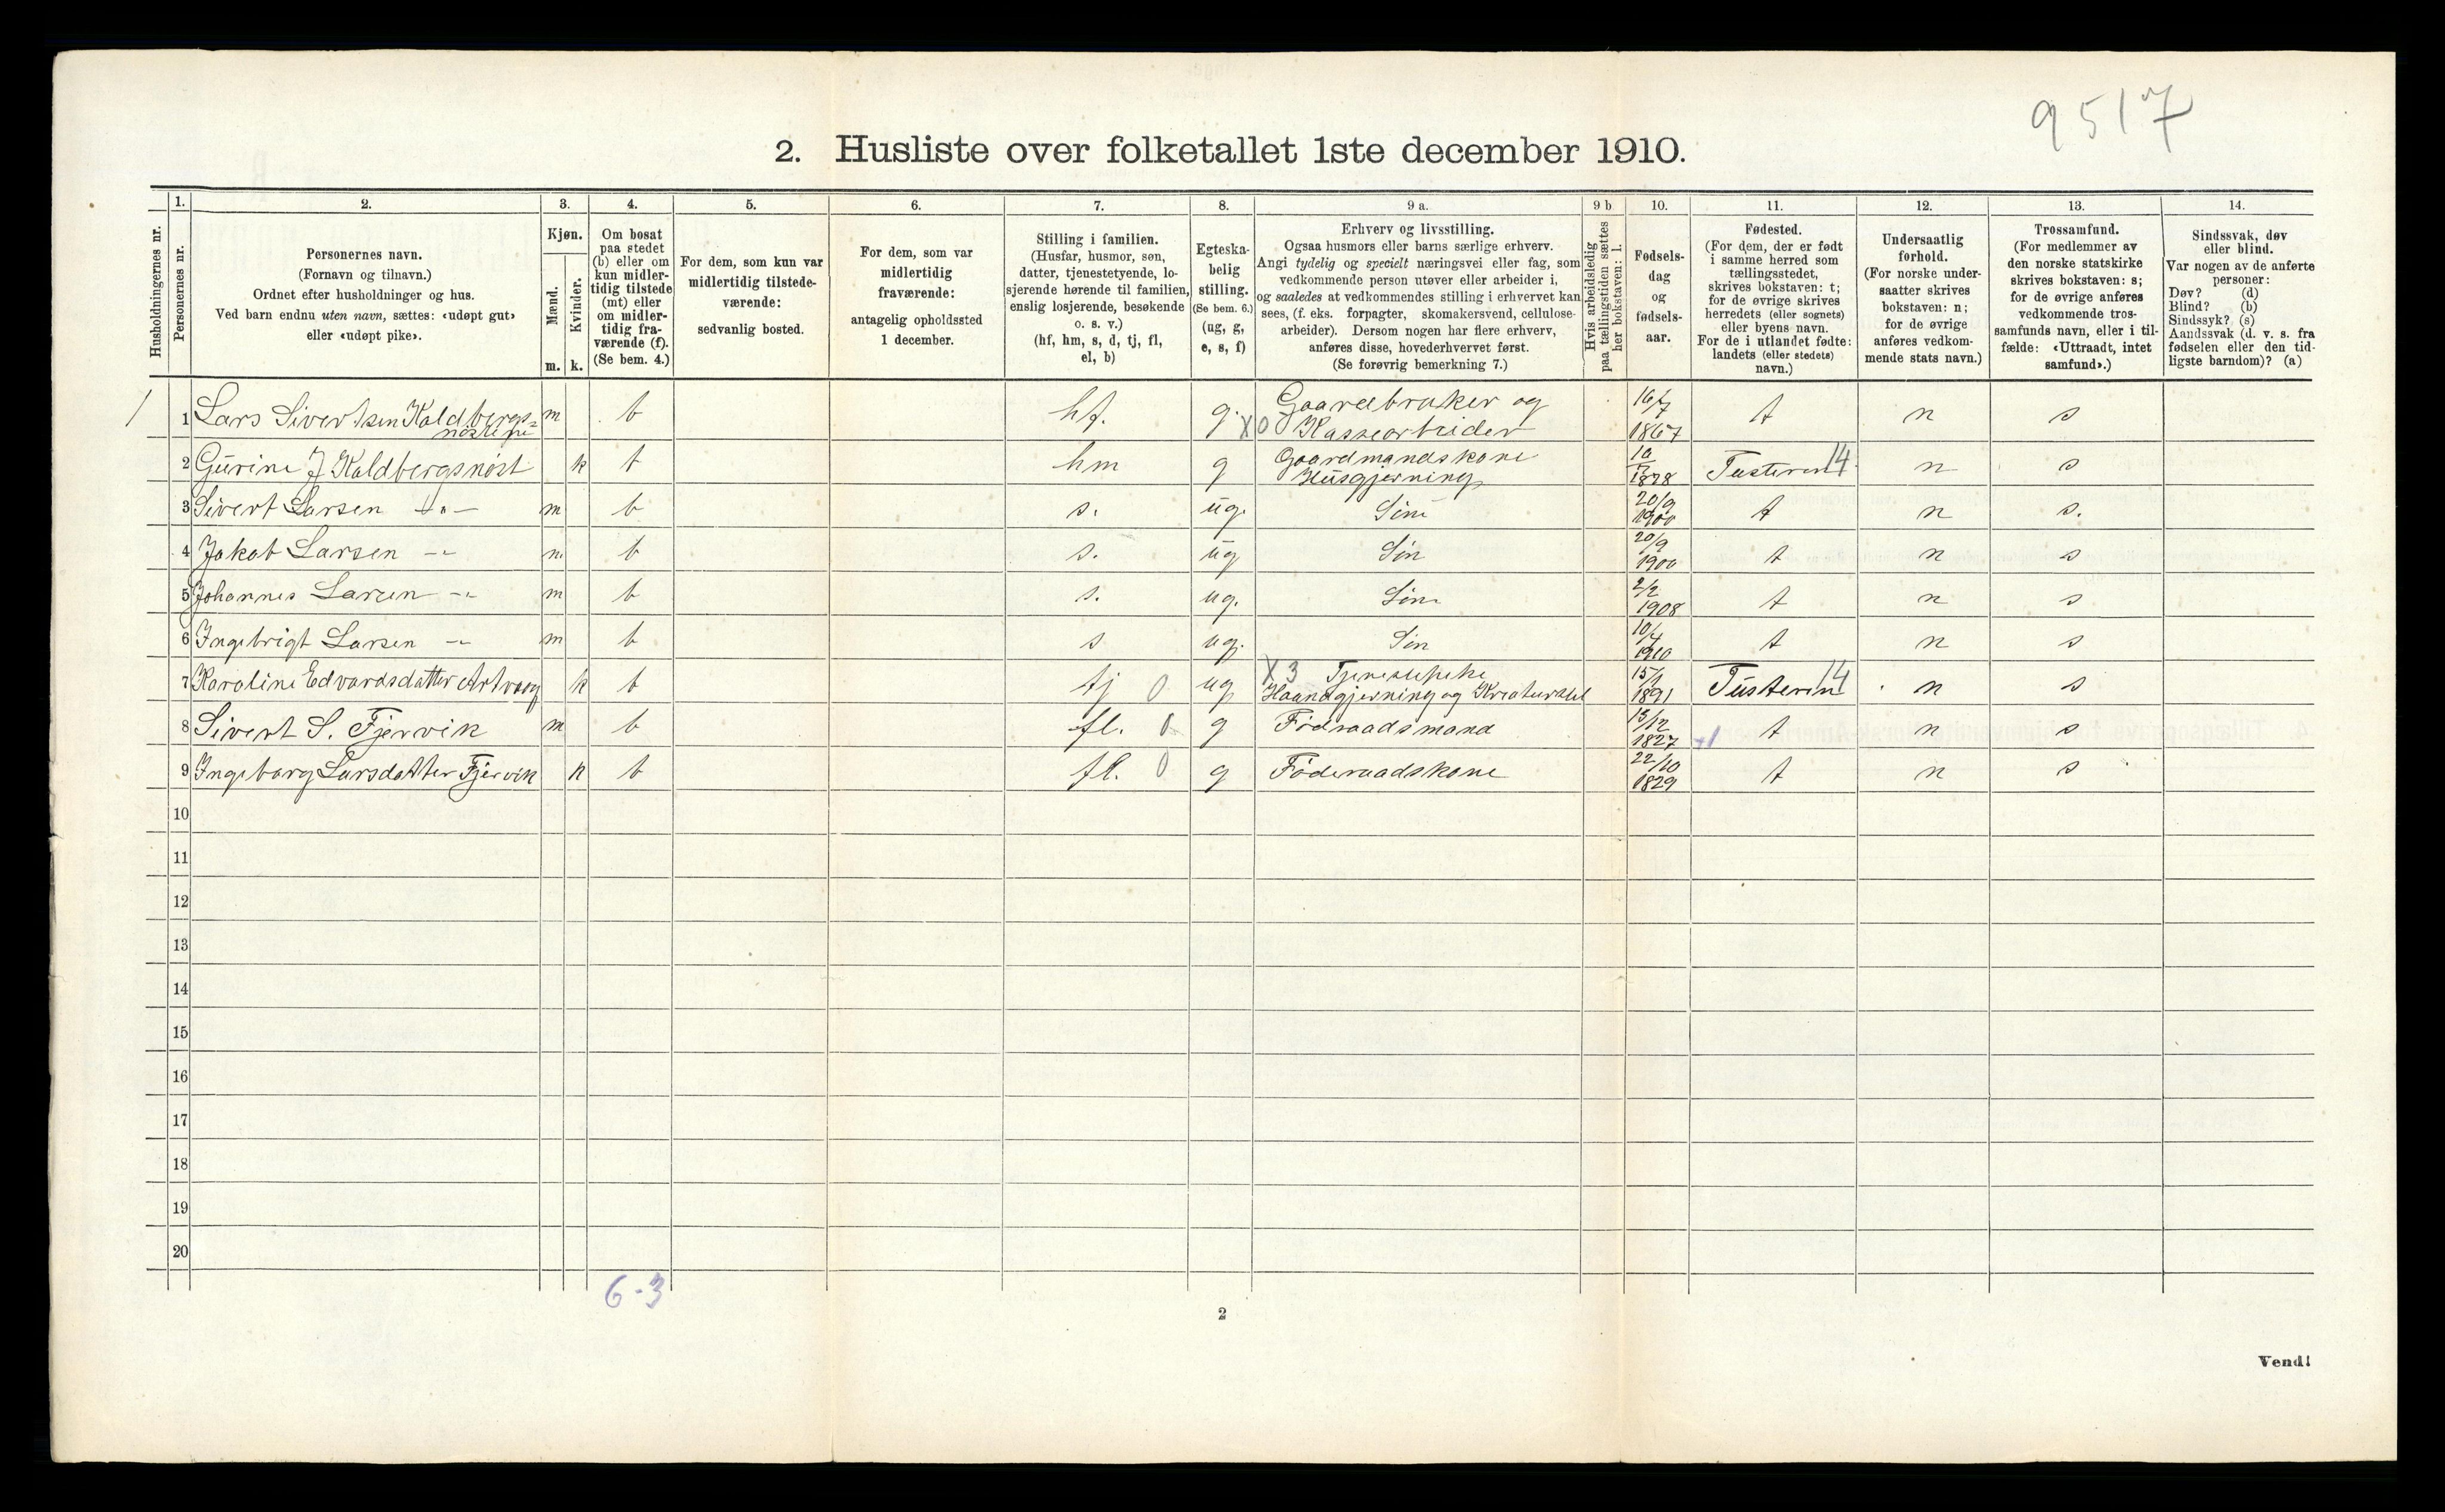 9517
2. Husliste over folketallet 1ste december 1910.
Husholdningernes nr.
1.
Personernes nr.
2.
Personernes navn.
(Fornavn og tilnavn.)
Ordnet efter husholdninger og hus.
Ved barn endnu uten navn, sættes: «udøpt gut»
eller «udøpt pike».
3.
Kjøn.
Mænd.
Kvinder.
m. k.
4.
Om bosat
paa stedet
(b) eller om
kun midler-
tidig tilstede
(mt) eller
om midler-
tidig fra-
værende (f).
(Se bem. 4.)
5.
For dem, som kun var
midlertidig tilstede-
værende:
sedvanlig bosted.
6.
For dem, som var
midlertidig
fraværende:
antagelig opholdssted
1 december.
7.
Stilling i familien.
(Husfar, husmor, søn,
datter, tjenestetyende, lo-
sjerende hørende til familien,
enslig losjerende, besøkende
o. s. v.)
(hf, hm, s, d, tj, fl,
el, b)
8.
Egteska-
belig
stilling.
(Se bem. 6.)
(ug, g,
e, s, f)
9 a.
Erhverv og livsstilling.
Ogsaa husmors eller barns særlige erhverv.
Angi tydelig og specielt næringsvei eller fag, som
vedkommende person utøver eller arbeider i,
og saaledes at vedkommendes stilling i erhvervet kan
sees, (f. eks. forpagter, skomakersvend, cellulose-
arbeider). Dersom nogen har flere erhverv,
anføres disse, hovederhvervet først.
(Se forøvrig bemerkning 7.)
9 b
Hvis arbeidsledig
paa tællingstiden sættes
her bokstaven: l.
10.
Fødsels-
dag
og
fødsels-
aar.
11.
Fødested.
(For dem, der er født
i samme herred som
tællingsstedet,
skrives bokstaven: t;
for de øvrige skrives
herredets (eller sognets)
eller byens navn.
For de i utlandet fødte:
landets (eller stedets)
navn.)
12.
Undersaatlig
forhold.
(For norske under-
saatter skrives
bokstaven: n;
for de øvrige
anføres vedkom-
mende stats navn.)
13.
Trossamfund.
(For medlemmer av
den norske statskirke
skrives bokstaven: s;
for de øvrige anføres
vedkommende tros-
samfunds navn, eller i til-
fælde: «Uttraadt, intet
samfund».)
14.
Sindssvak, døv
eller blind.
Var nogen av de anførte
personer:
Døv? (d)
Blind? (b)
Sindssyk? (s)
Aandssvak (d. v. s. fra
fødselen eller den tid-
ligste barndom)? (a)
1 1 Lars Sivertsen Kaldbergs= m b hf. g. X0 Gaardbruker og 16/7 1867 t n s
Kassearbeider
2 Gurine J Kaldbergsnøst k t hm g Gaardmandskone 1878 Tusteren 14 n s
Husgjerning
3 Sivert Larsen -"- m b s. ug. Søn 20/9 1900 t n s.
4 Jakob Larsen -"- m b s. ug Søn 20/9 1900 t n s
5 Johannes Larsen -"- m b s. ug. Søn 2/2 1908 t n s
6 Ingebrigt Larsen -"- m b s ug. Søn 10/4 1910 t n s
7 Karoline Edvardsdatter Artvaag k b tj 0 ug X 3 Tjenestepike 15/1 1891 Tusteren 14 n s
Haandgjerning og Kreaturstel
8 Sivert S. Fjervik m b fl. 0 g Fødraadsmand 13/12 1827 +1 t n s
9 Ingeborg Larsdatter Fjervik k b fl. 0 g Føderaadskone 22/10 1829 t n s
10
11
12
13
14
15
16
17
18
19
20
6-3
2
Vend!